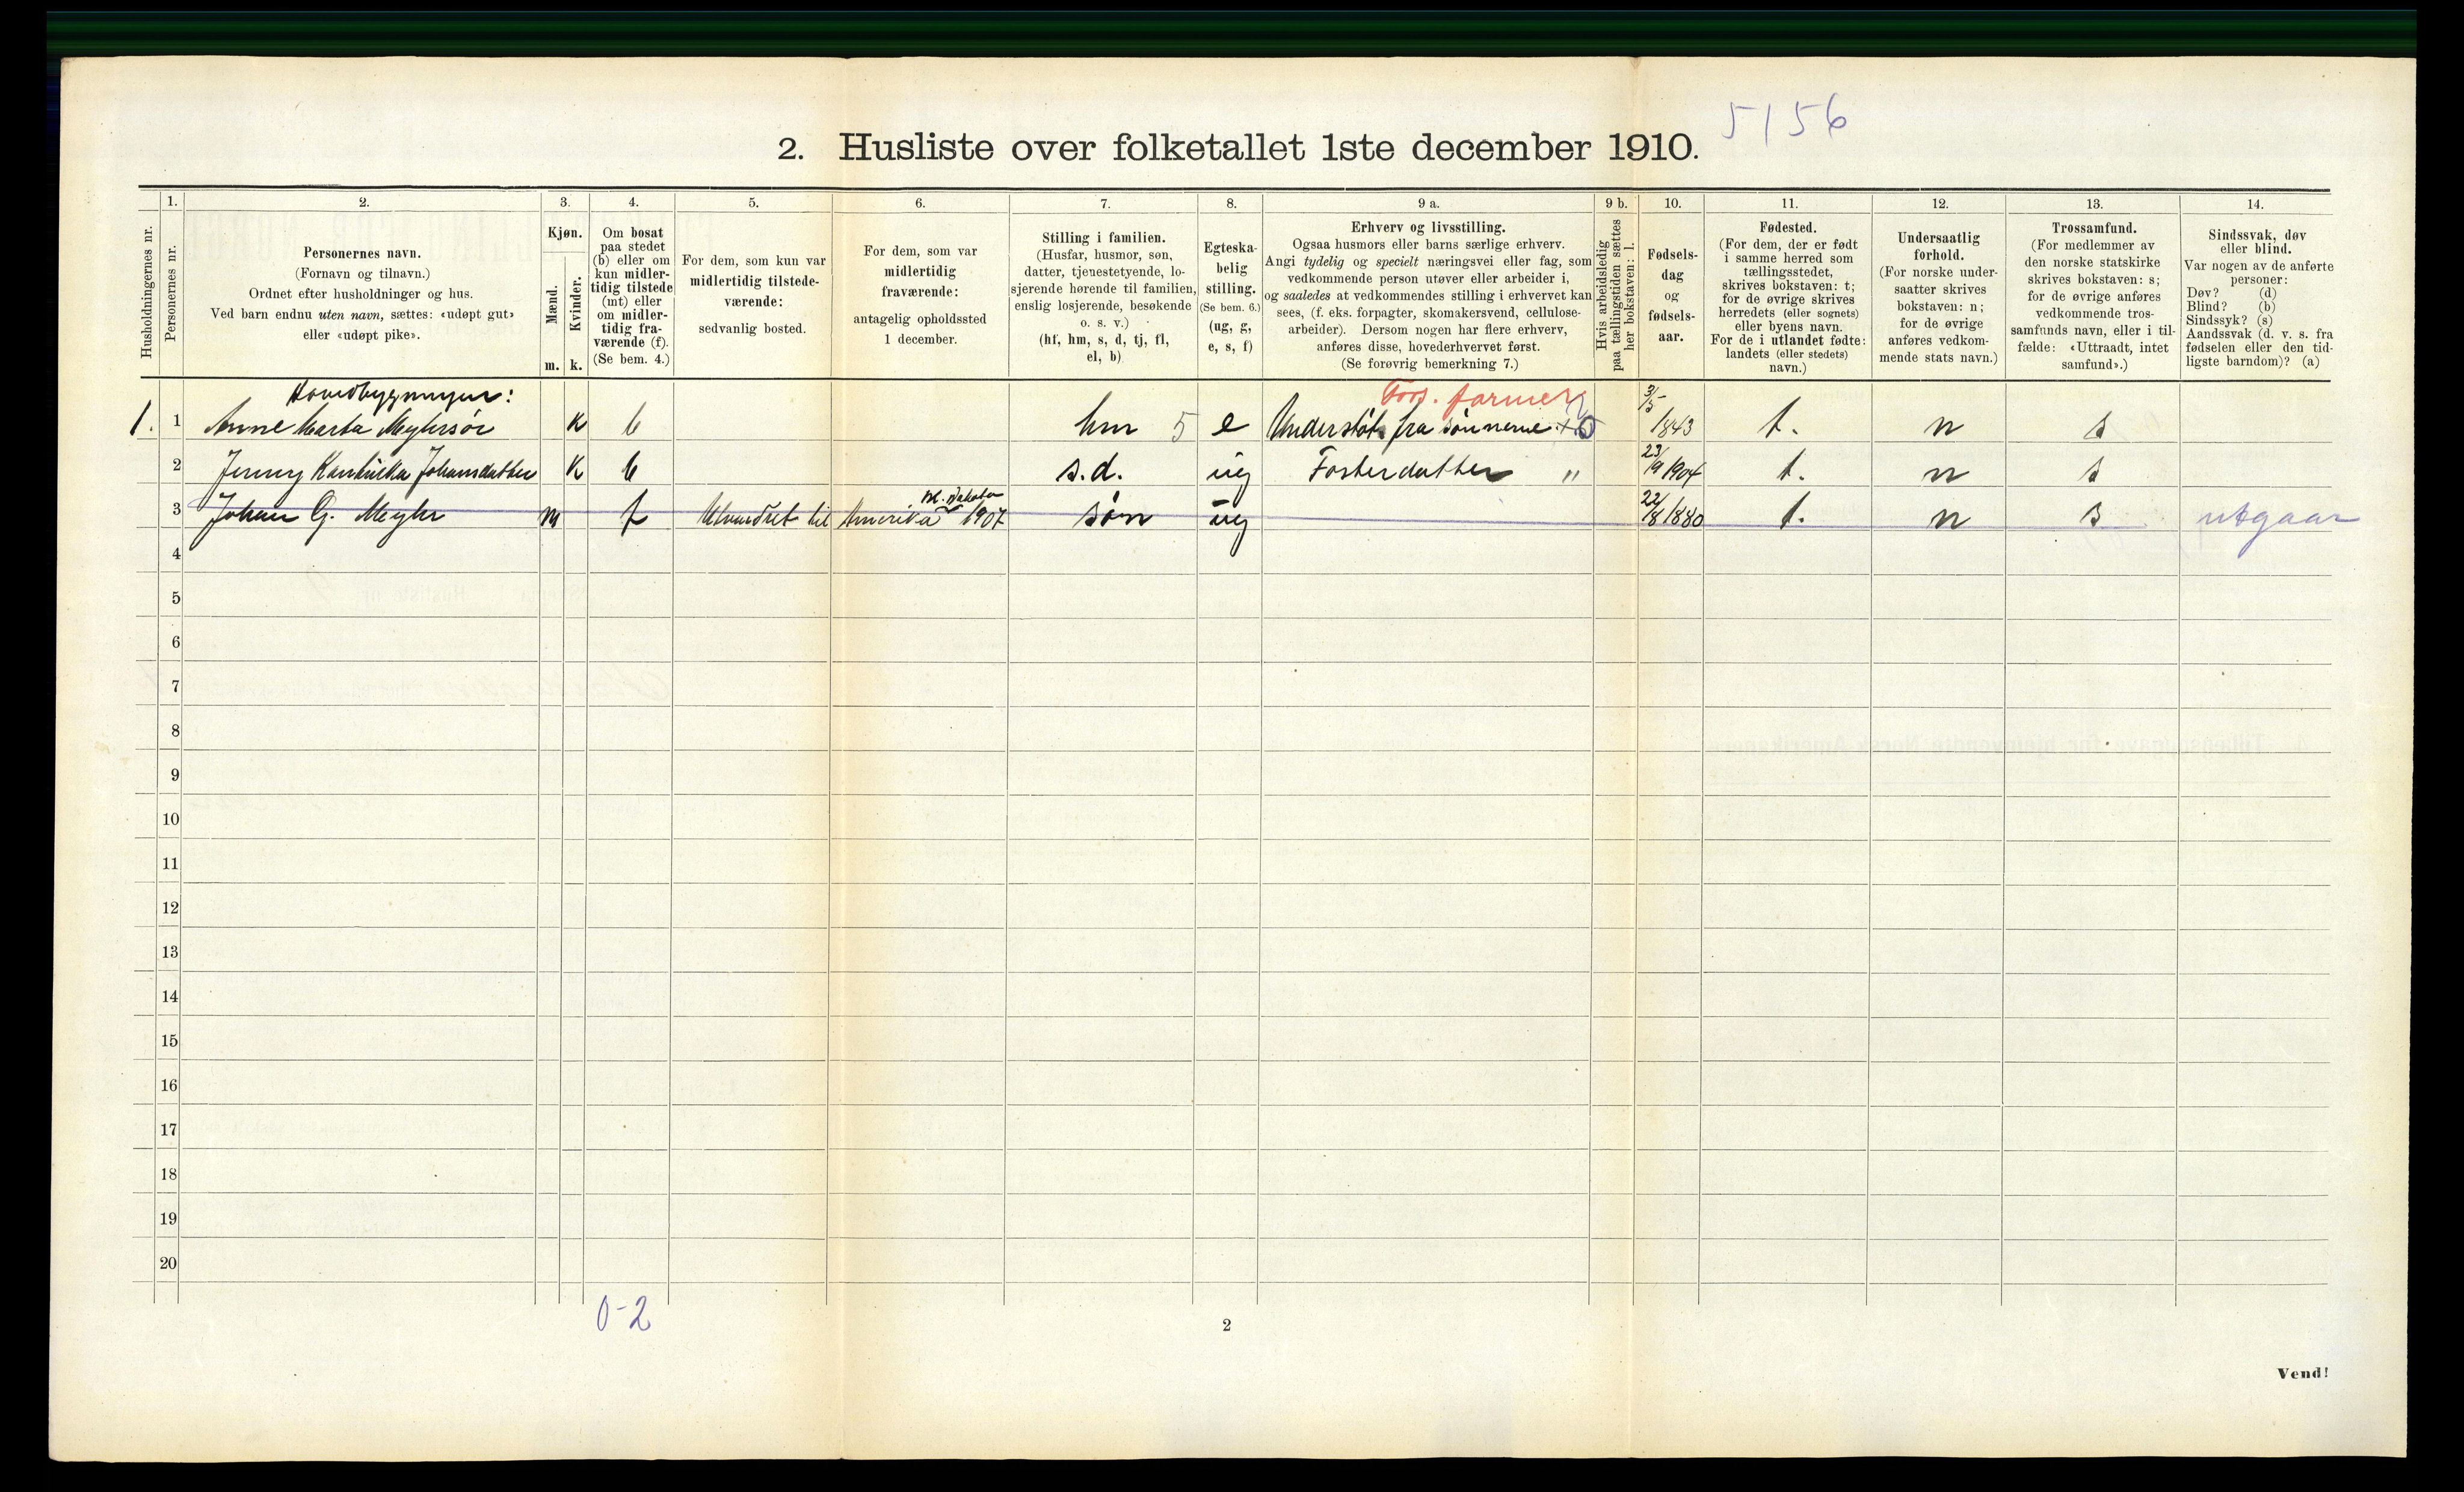 5156
2. Husliste over folketallet 1ste december 1910.
Husholdningernes nr.
1.
Personernes nr.
2.
Personernes navn.
(Fornavn og tilnavn.)
Ordnet efter husholdninger og hus.
Ved barn endnu uten navn, sættes: «udøpt gut»
eller «udøpt pike».
3.
Kjøn.
Mænd.
Kvinder.
m. k.
4.
Om bosat
paa stedet
(b) eller om
kun midler-
tidig tilstede
(mt) eller
om midler-
tidig fra-
værende (f).
(Se bem. 4.)
5.
For dem, som kun var
midlertidig tilstede-
værende:
sedvanlig bosted.
6.
For dem, som var
midlertidig
fraværende:
antagelig opholdssted
1 december.
7.
Stilling i familien.
(Husfar, husmor, søn,
datter, tjenestetyende, lo-
sjerende hørende til familien,
enslig losjerende, besøkende
o. s. v.)
(hf, hm, s, d, tj, fl,
el, b)
8.
Egteska-
belig
stilling.
(Se bem. 6.)
(ug, g,
e, s, f)
9 a.
Erhverv og livsstilling.
Ogsaa husmors eller barns særlige erhverv.
Angi tydelig og specielt næringsvei eller fag, som
vedkommende person utøver eller arbeider i,
og saaledes at vedkommendes stilling i erhvervet kan
sees, (f. eks. forpagter, skomakersvend, cellulose-
arbeider). Dersom nogen har flere erhverv,
anføres disse, hovederhvervet først.
(Se forøvrig bemerkning 7.)
9 b.
Hvis arbeidsledig
paa tællingstiden sættes
her bokstaven: l.
10.
Fødsels-
dag
og
fødsels-
aar.
11.
Fødested.
(For dem, der er født
i samme herred som
tællingsstedet,
skrives bokstaven: t;
for de øvrige skrives
herredets (eller sognets)
eller byens navn.
For de i utlandet fødte:
landets (eller stedets)
navn.)
12.
Undersaatlig
forhold.
(For norske under-
saatter skrives
bokstaven: n;
for de øvrige
anføres vedkom-
mende stats navn.)
13.
Trossamfund.
(For medlemmer av
den norske statskirke
skrives bokstaven: s;
for de øvrige anføres
vedkommende tros-
samfunds navn, eller i til-
fælde: «Uttraadt, intet
samfund».)
14.
Sindssvak, døv
eller blind.
Var nogen av de anførte
personer:
Døv? (d)
Blind? (b)
Sindssyk? (s)
Aandssvak (d. v. s. fra
fødselen eller den tid-
ligste barndom)? (a)
Hovedbygningen:
Fors. farmer
1. 1 Anne Marta k b hm 5 e Understøt. fra sønnerne 3/5 1843 t. n s
2 Jenny Johansdatter k b s.d. ug Fosterdatter " 23/9 1904 t. n s
N. Dakota
3 Johan G. m f Utvandret til Amerika 1907 søn ug 22/8 1880 t. n s utgaar
4
5
6
7
8
9
10
11
12
13
14
15
16
17
18
19
20
0-2
2
Vend!